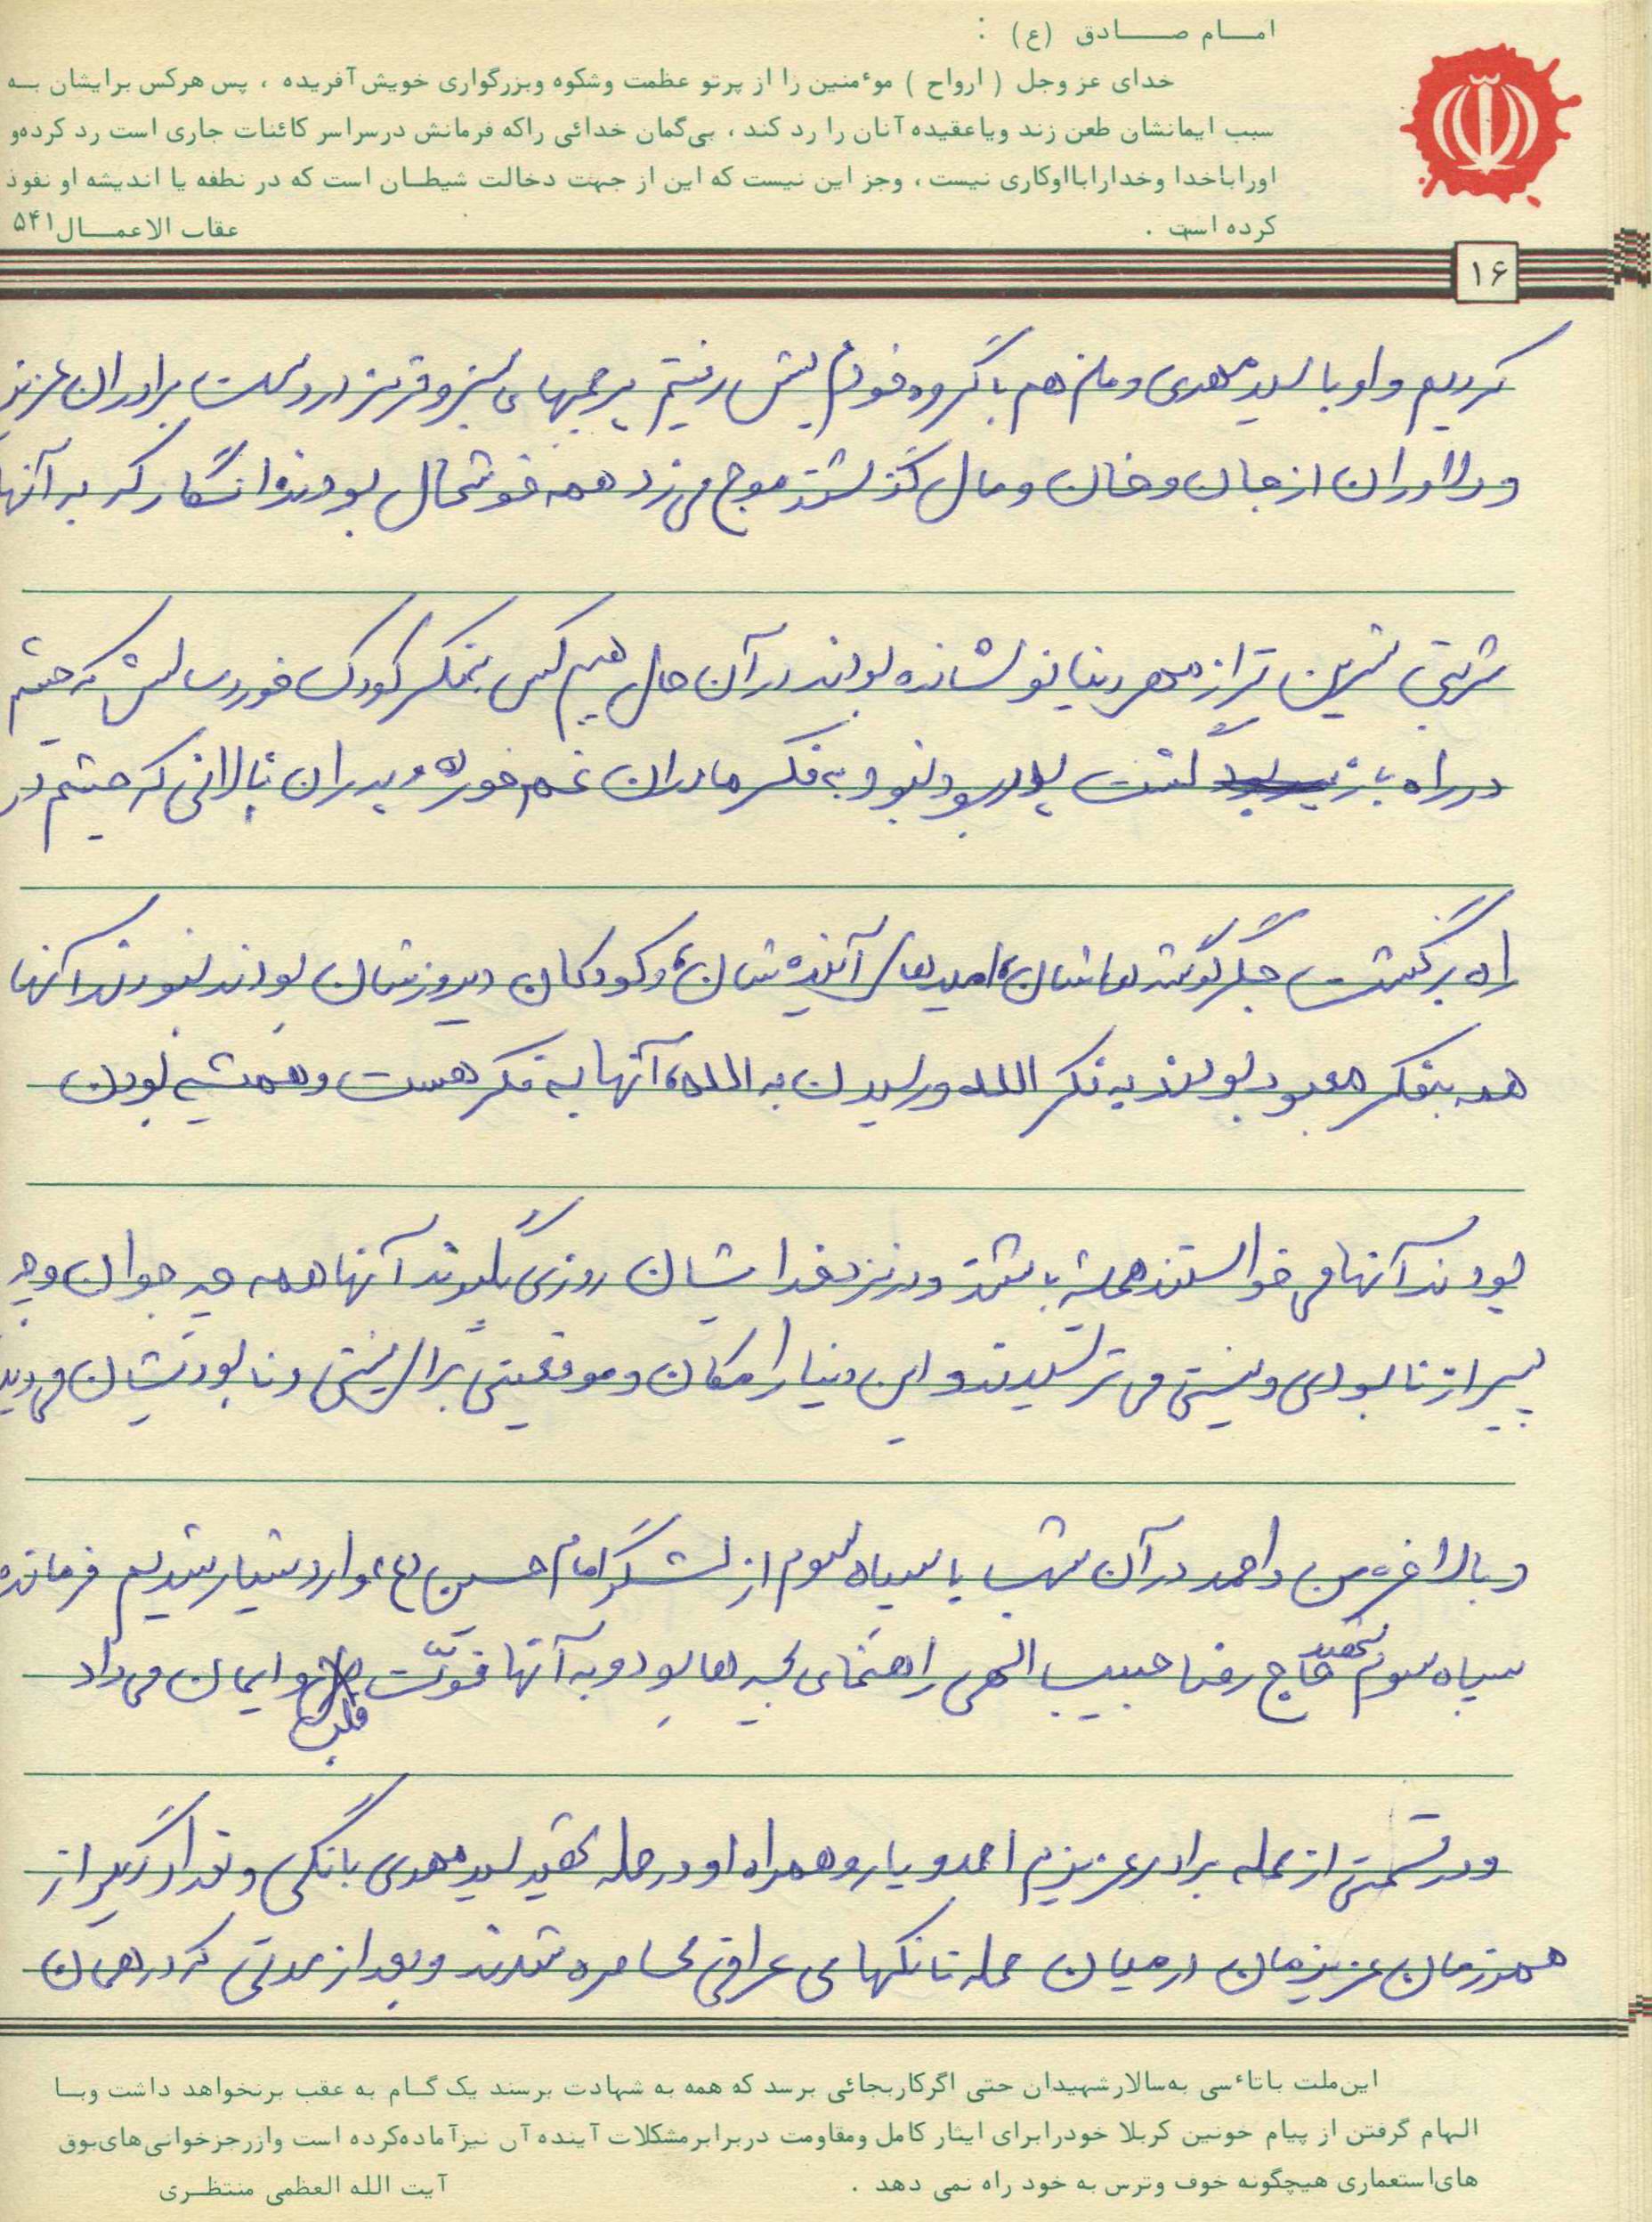 امـــام صـــــادق (ع) :
خدای عز وجل ( ارواح ) موءمنین را از پرتو عظمت وشکوه وبزرگواری خویش آفریده ، پس هرکس برایشان بــه
سبب ایمانشان طعن زند ویاعقیده آنان را رد کند ، بی‌گمان خدائی راکه فرمانش درسراسر کائنات جاری است رد کرده‌و
اوراباخدا وخدارابااوکاری نیست ، وجز این نیست که این از جهت دخالت شیطــان است که در نطفه یا اندیشه او نفوذ
کرده است .
عقاب الاعمـــال ۵۴۱
۱۶
کردیم و او با سید مهدی و منم هم با گروه خودم پیش رفتیم پرچمهای سبز و قرمز در دست برادران عزیز
و دلاوران از جان و خان و مال گذشته موج می‌زد همه خوشحال بودند انگار که به آنها
شربتی شیرین تر از مهر دنیا نوشانده بودند در آن حال هیچ کس بفکر کودک خوردسالش که چشم
در راه باز گشت پدر بود نبود به فکر مادران غم خور و پدران نالانی که چشم در
راه برگشت جگر گوشه هاشان، امیدهای آینده شان، و کودکان دیروزشان بودند نبودند آنها
همه بفکر معبود بودند به فکر الله و رسیدن به الله، آنها به فکر هست و همیشه بودن
بودند آنها می خواستند همیشه باشند و در نزد خدایشان روزی بگیرند آنها همه چه جوان و چه
پیر از نابودی و نیستی می ترسیدند و این دنیا را مکان و موقعیتی برای نیستی و نابودیشان می دید
و بالاخره من و احمد در آن شب با سپاه سوم از لشگر امام حسین (ع) وارد شیار شدیم فرمانده
سپاه سوم شهید حاج رضا حبیب الهی راهنمای بچه ها بود و به آنها قوّت قلب و ایمان می داد
و در قسمتی از حمله برادر عزیزم احمد و یار و همراه او در حمله شهید سید مهدی بانگی و تعداد دیگر از
همرزمان عزیزمان در میان حمله تانکهای عراقی محاصره شدند و بعد از مدتی که در همان
این‌ملت باتاءسی به‌سالارشهیدان حتی اگرکاربجائی برسد که همه به شهادت برسند یک گــام به عقب برنخواهد داشت وبــا
الهام گرفتن از پیام خونین کربلا خودرابرای ایثار کامل ومقاومت دربرابرمشکلات آینده آن نیزآماده‌کرده است وازرجزخوانی‌های‌بوق
های‌استعماری هیچگونه خوف وترس به خود راه نمی دهد .
آیت الله العظمی منتظــری